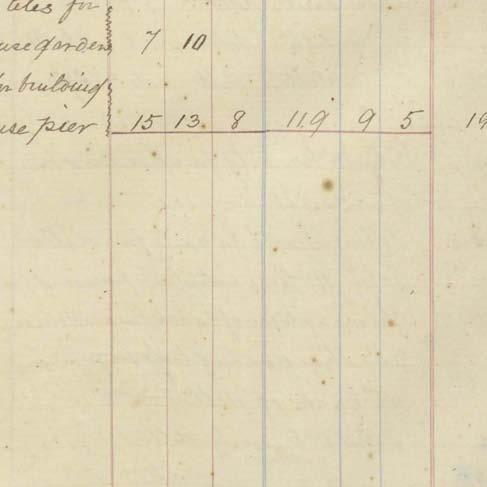 tiles for
use garden 7 10
for building
use pier 15 13 8 119 9 5 19